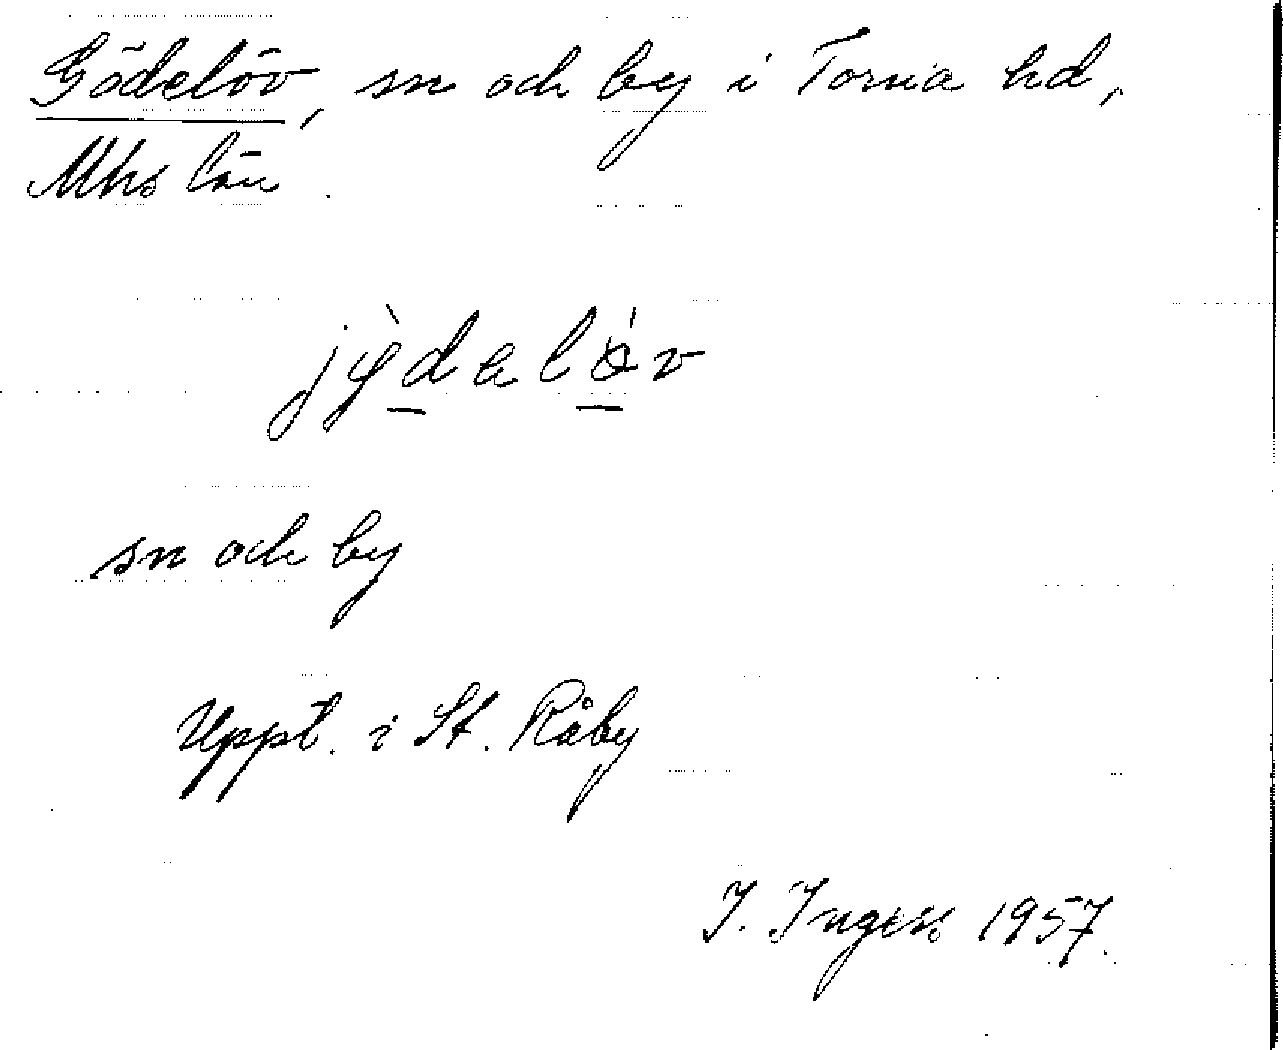 Gödelöv, sn och by i Torna hd,
Mhs län.
jø̀dalǿv
sn och by
Uppt. i St. Råby
I. Ingers 1957.